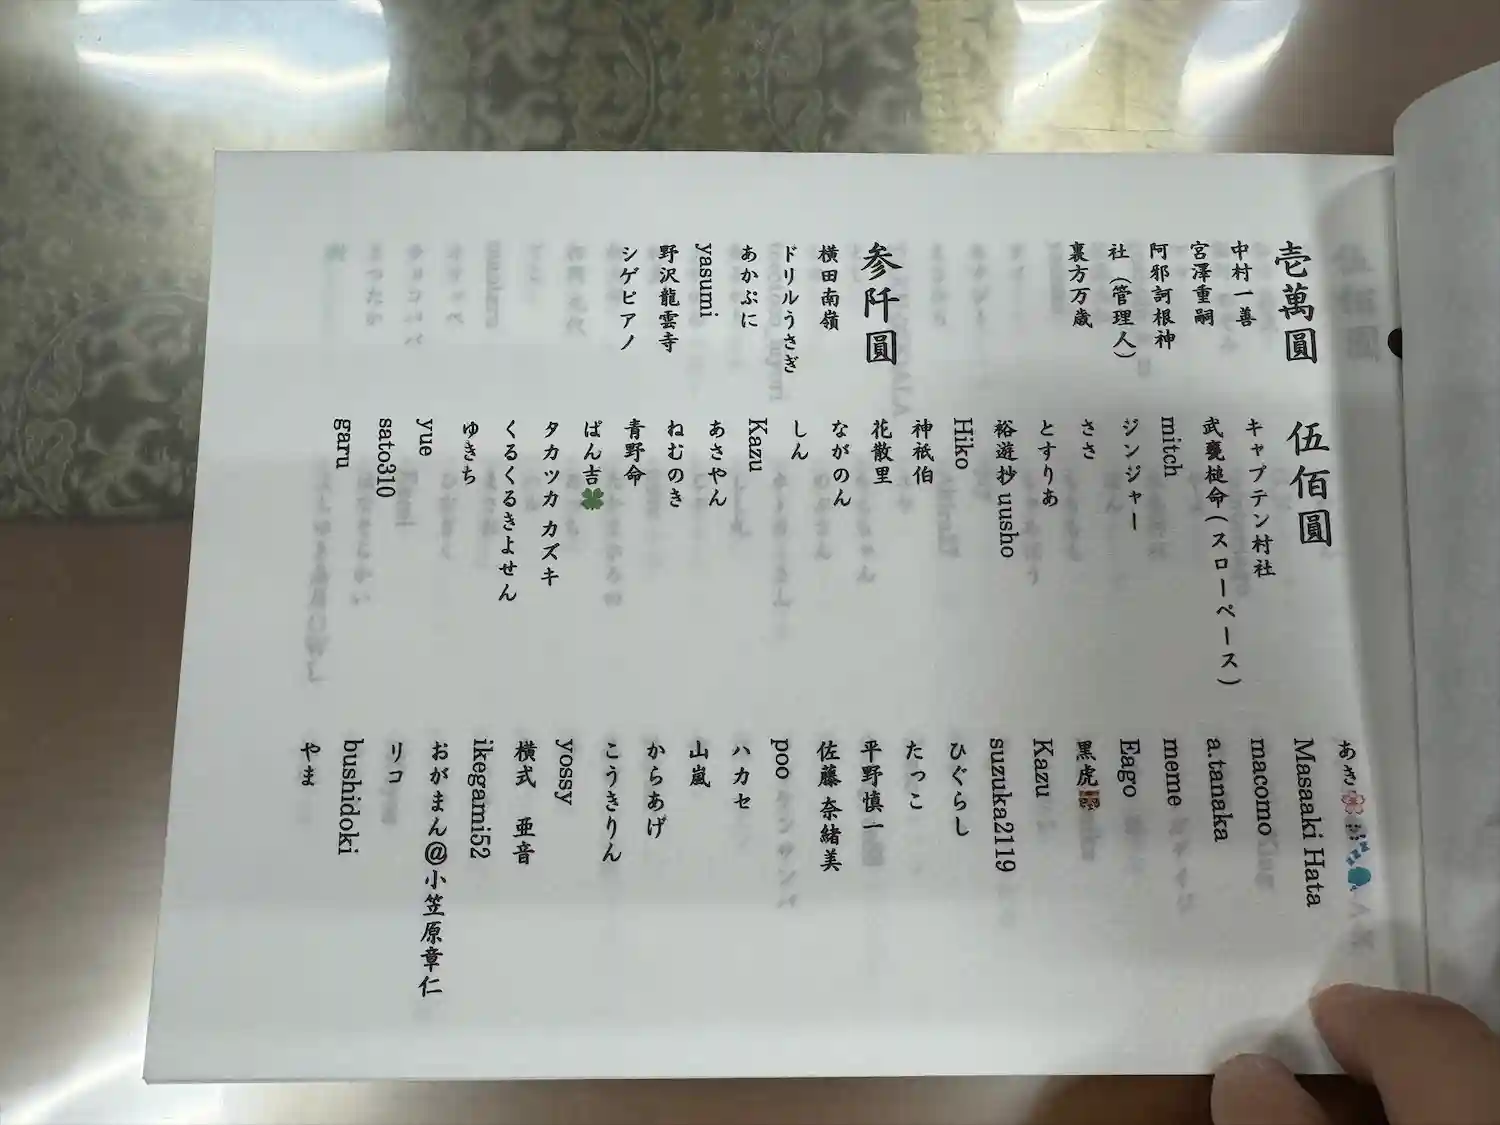 壱萬圓
中村一善
宮澤重嗣
阿邪訶根神
社（管理人）
裏方万歳
参阡圓
横田南嶺
ドリルうさぎ
あかぷに
yasumi
野沢龍雲寺
シゲピアノ
伍佰圓
キャプテン村社
武甕槌命(スローペース)
mitch
ジンジャー
ささ
とすりあ
裕遊抄 uusho
Hiko
神祇伯
花散里
ながのん
しん
Kazu
あさやん
ねむのき
青野命
ぱん吉🍀
タカツカ カズキ
くるくるきよせん
ゆきち
yue
sato310
garu
あき🌸
Masaaki Hata
macomo
a.tanaka
meme
Eago
黒虎🐯
Kazu
suzuka2119
ひぐらし
たっこ
平野慎一
佐藤 奈緒美
poo
ハカセ
山嵐
からあげ
こうきりん
yossy
横式　亜音
ikegami52
おがまん@小笠原章仁
リコ
bushidoki
やま